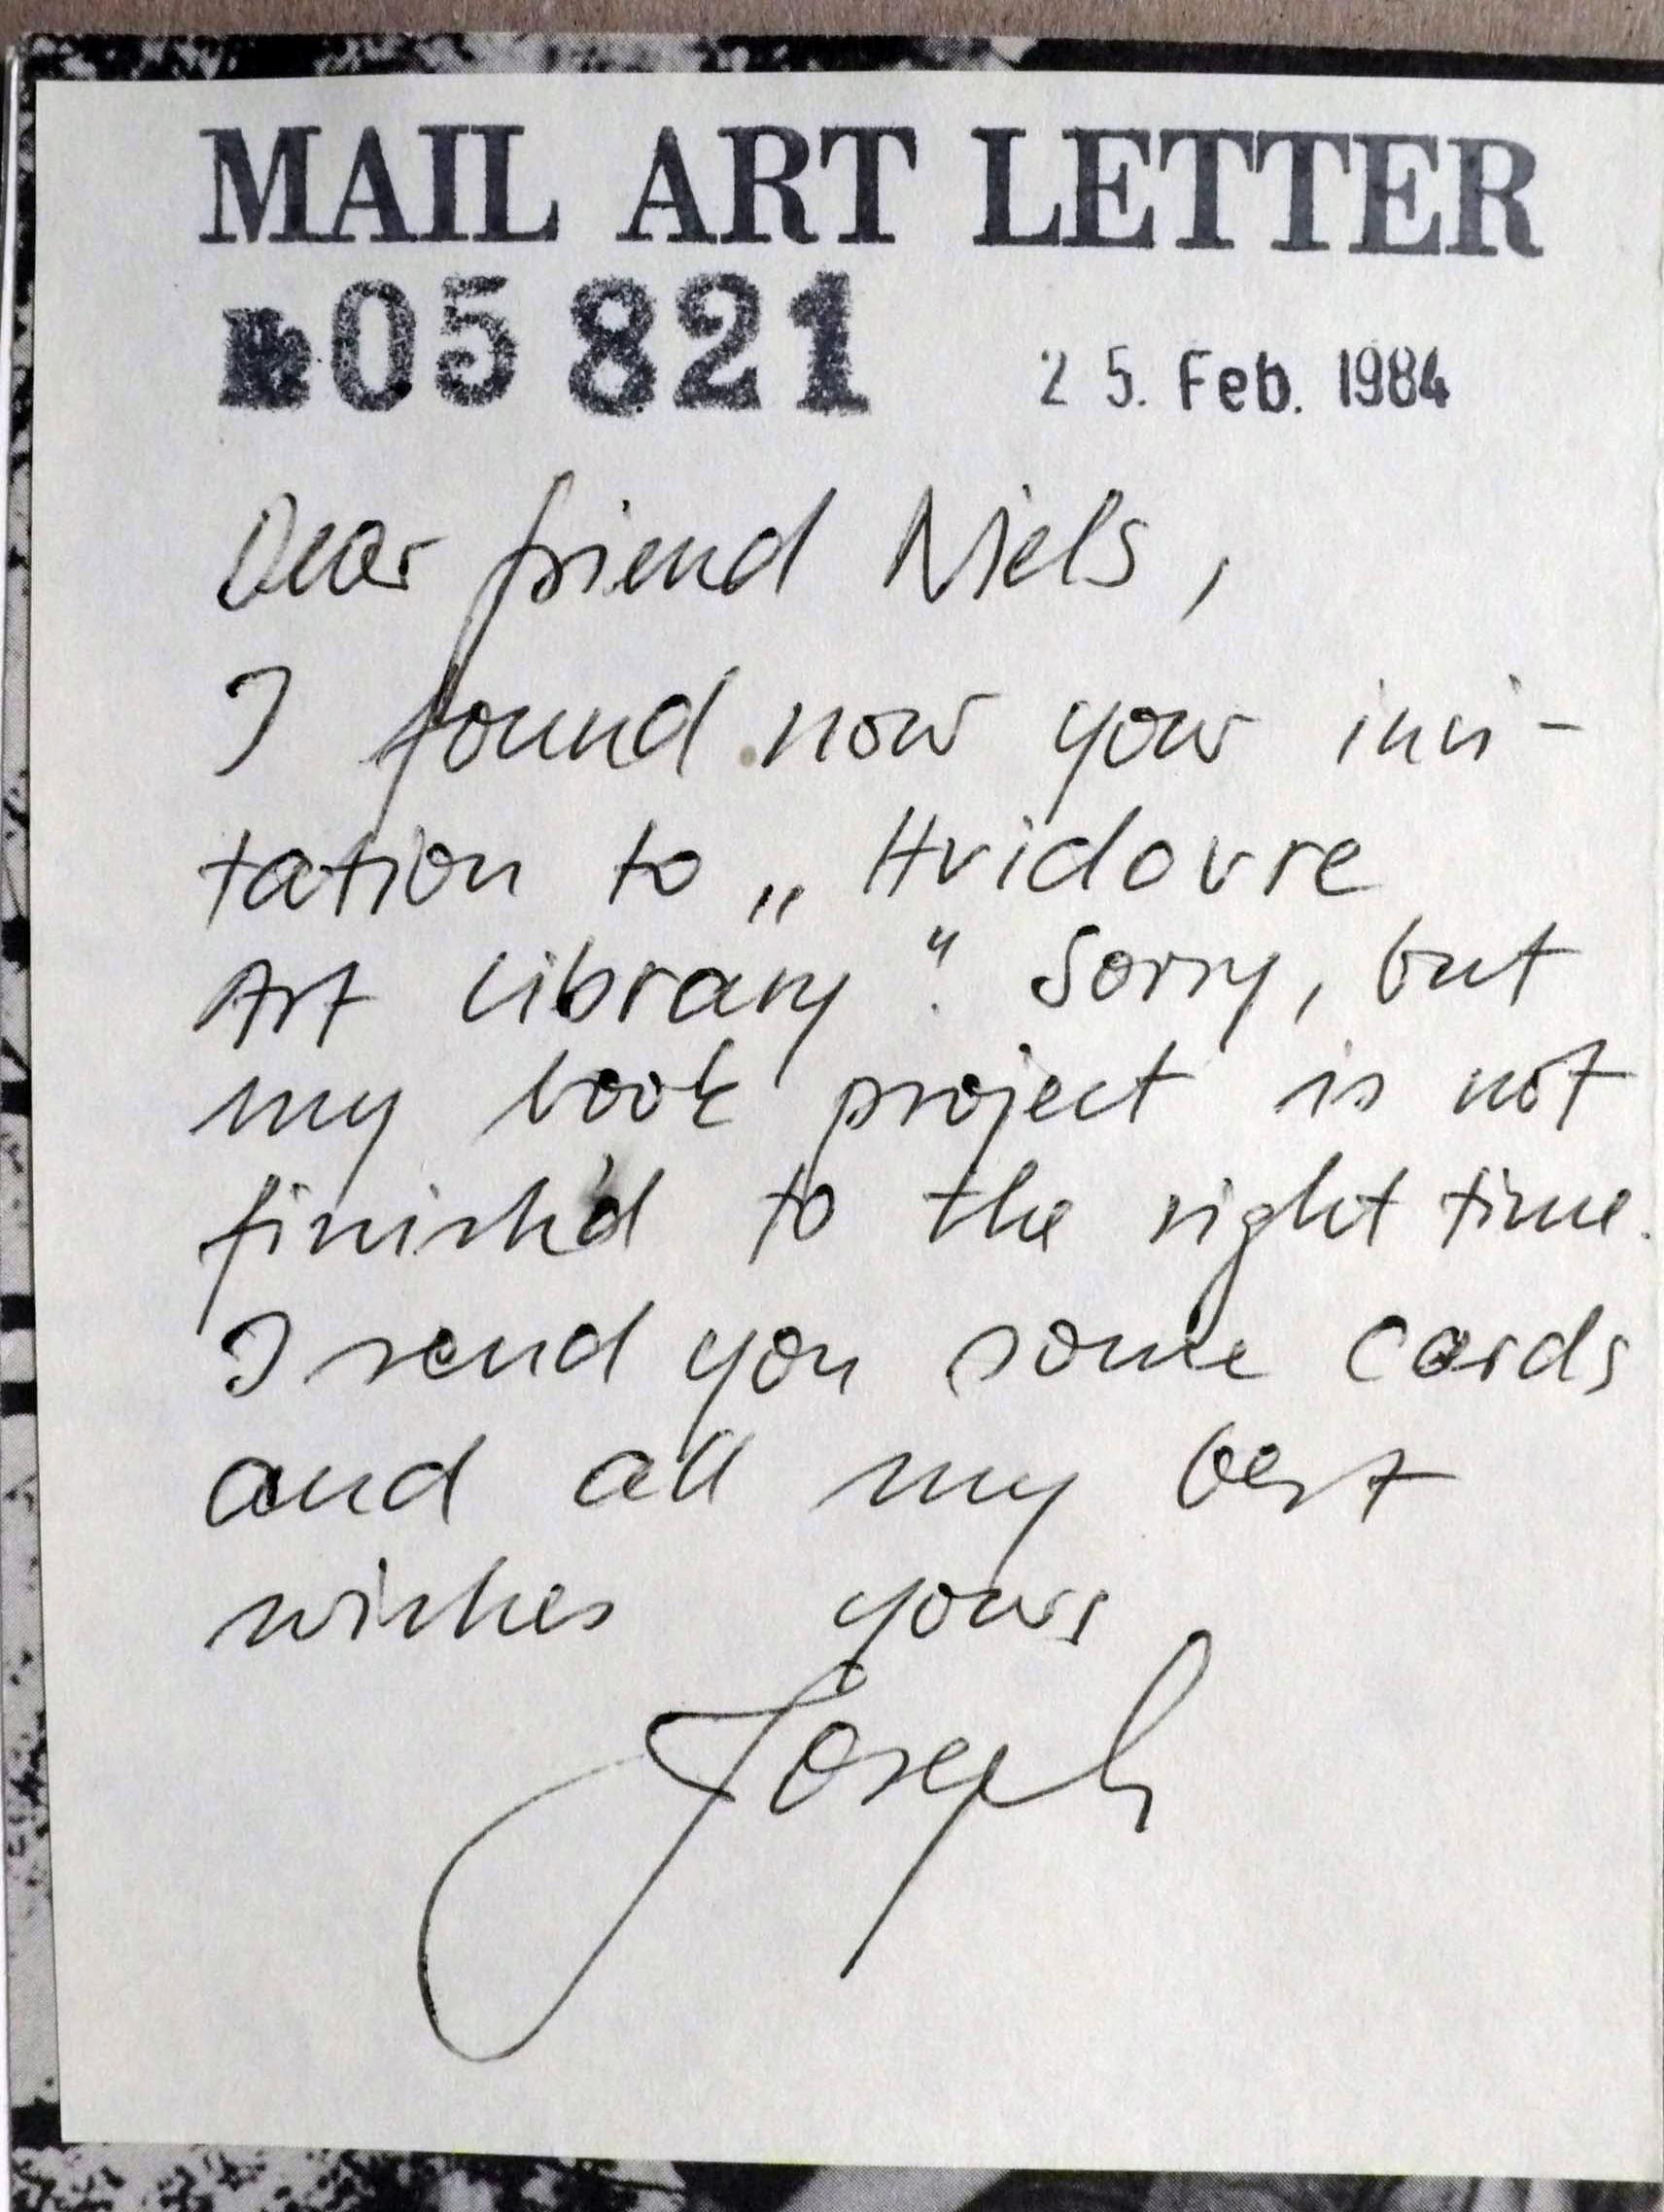 MAIL ART LETTER
№05 821 25. Feb. 1984
Dear friend Niels,
I found now your invi-
tation to „Hvidovre
Art Library“. Sorry, but
my book project is not
finish'd to the right time.
I send you some cards
and all my best
wishes yours
Joseph